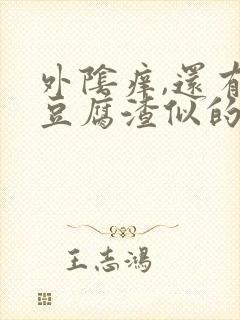 外陰癢,還有
豆腐渣似的
王志鴻